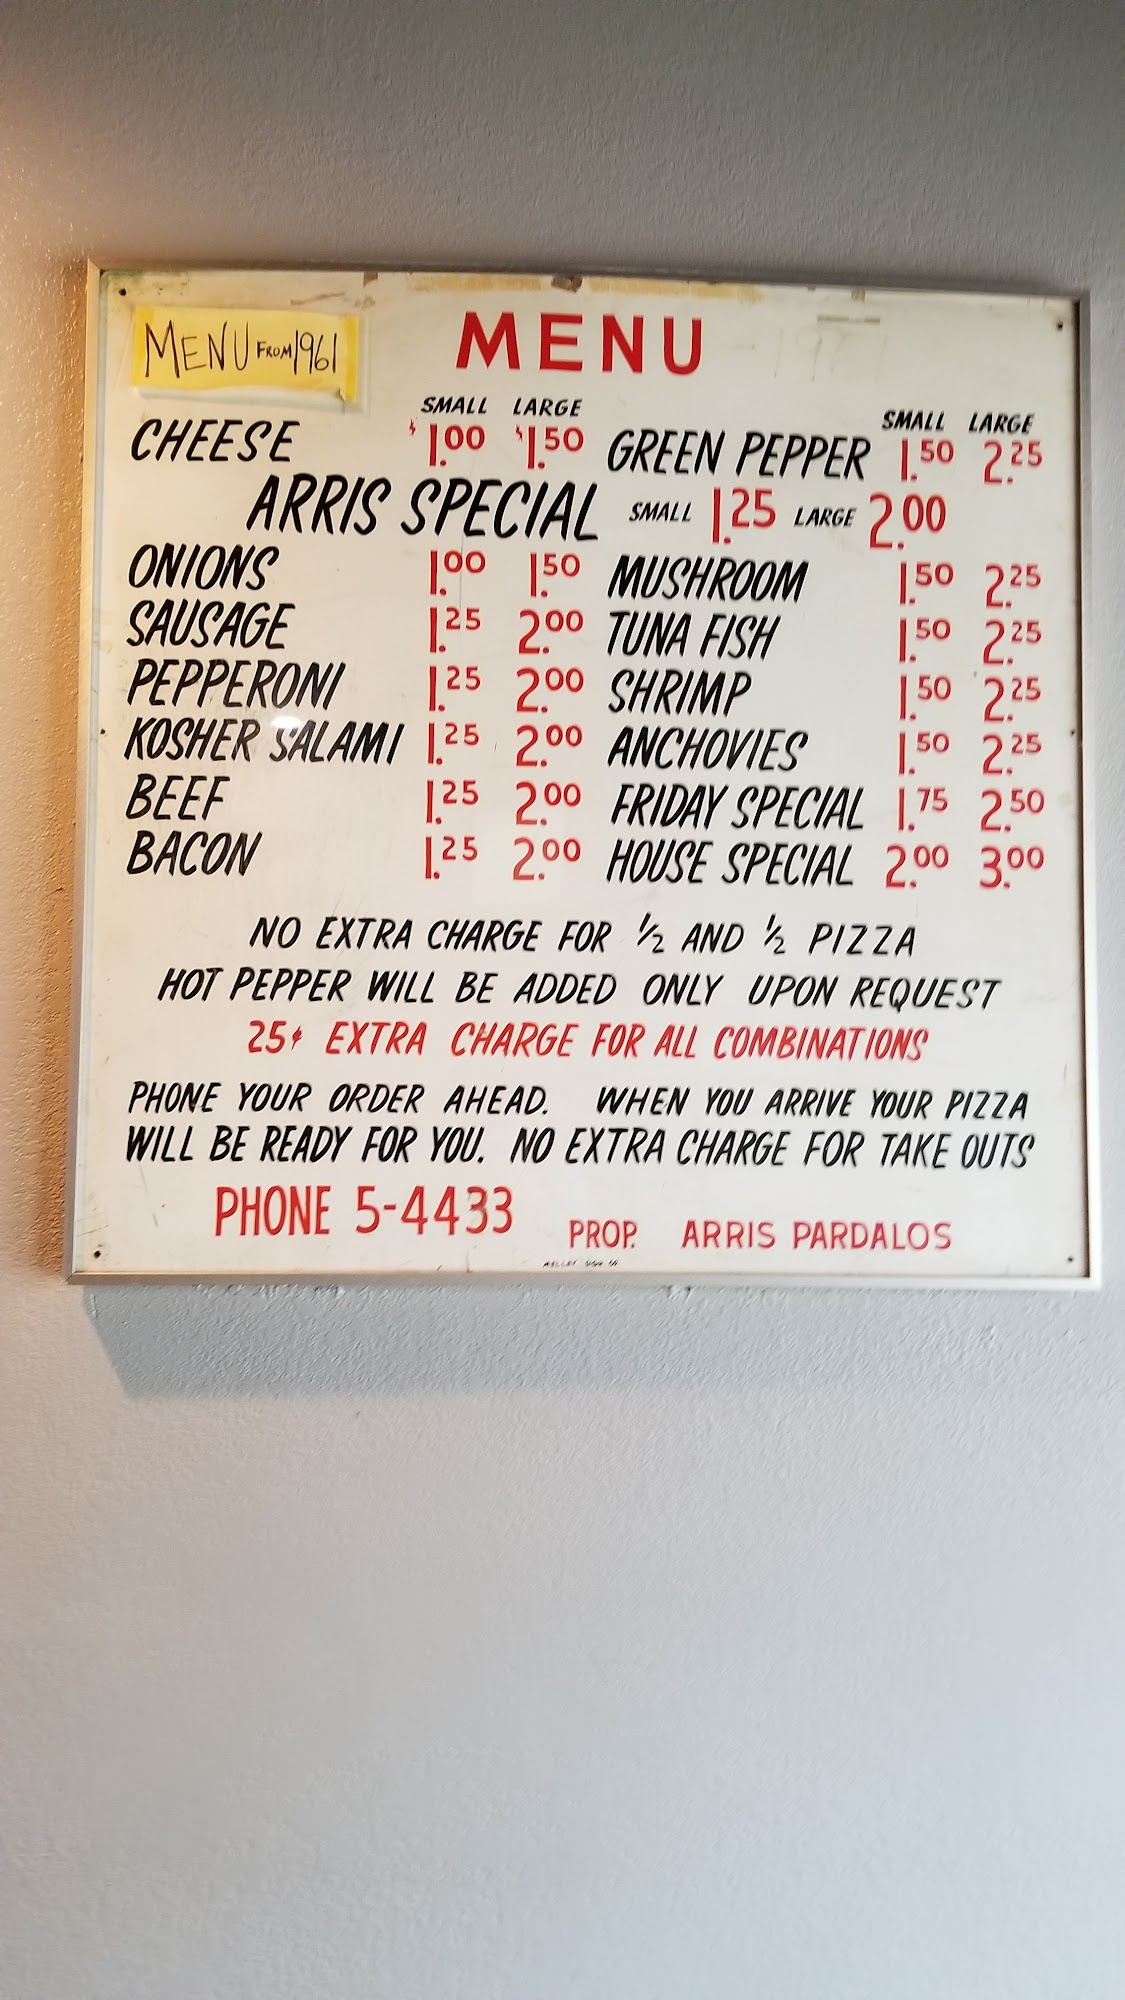 MENU FROM 1961
MENU
SMALL LARGE
CHEESE $1.00 $1.50
SMALL LARGE
GREEN PEPPER 1.50 2.25
ARRIS SPECIAL SMALL 1.25 LARGE 2.00
ONIONS 1.00 1.50 MUSHROOM 1.50 2.25
SAUSAGE 1.25 2.00 TUNA FISH 1.50 2.25
PEPPERONI 1.25 2.00 SHRIMP 1.50 2.25
KOSHER SALAMI 1.25 2.00 ANCHOVIES 1.50 2.25
BEEF 1.25 2.00 FRIDAY SPECIAL 1.75 2.50
BACON 1.25 2.00 HOUSE SPECIAL 2.00 3.00
NO EXTRA CHARGE FOR ½ AND ½ PIZZA
HOT PEPPER WILL BE ADDED ONLY UPON REQUEST
25¢ EXTRA CHARGE FOR ALL COMBINATIONS
PHONE YOUR ORDER AHEAD. WHEN YOU ARRIVE YOUR PIZZA
WILL BE READY FOR YOU. NO EXTRA CHARGE FOR TAKE OUTS
PHONE 5-4433 PROP. ARRIS PARDALOS